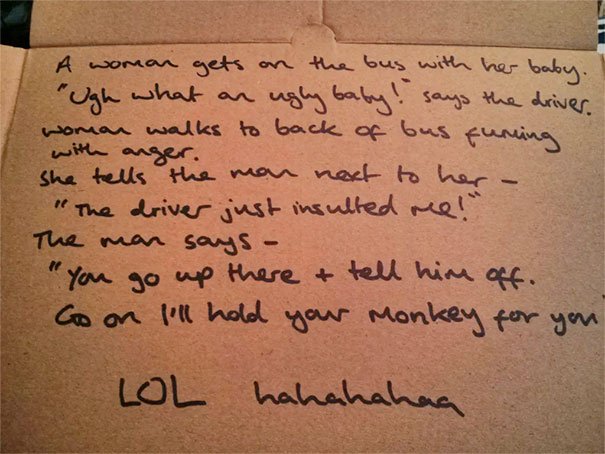 A woman gets on the bus with her baby.
"Ugh what an ugly baby!" says the driver.
woman walks to back of bus fuming
with anger.
She tells the man next to her -
"The driver just insulted me!"
The man says -
"You go up there + tell him off.
Go on I'll hold your monkey for you
LOL hahahahaa